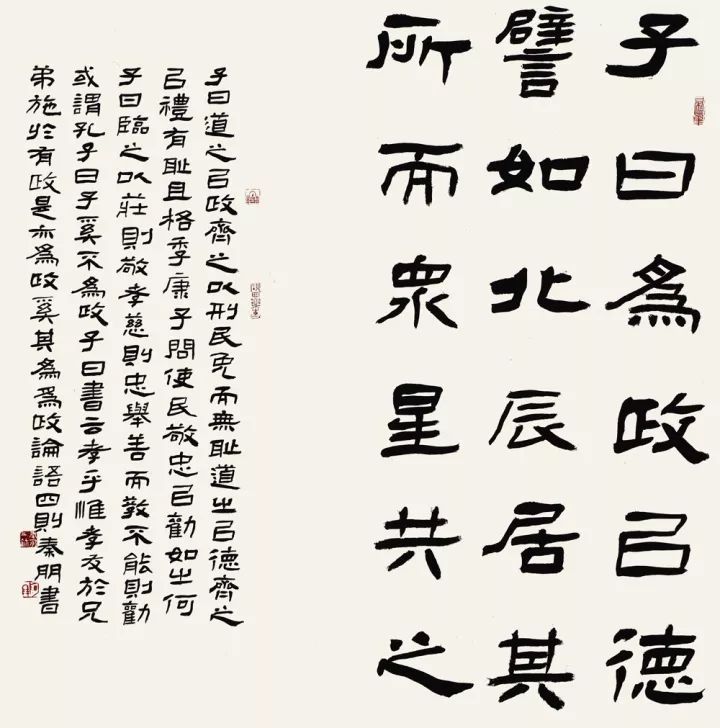 子曰爲政㠯德
譬如北辰居其
所而眾星共之
子曰道之㠯政齊之以刑民免而無耻道之㠯德齊之
㠯禮有耻且格季康子問使民敬忠㠯勸如之何
子曰臨之以莊則敬孝慈則忠舉善而教不能則勸
或謂孔子曰子奚不爲政子曰書云孝乎惟孝友於兄
弟施於有政是亦爲政奚其爲爲政論語四則秦朋書